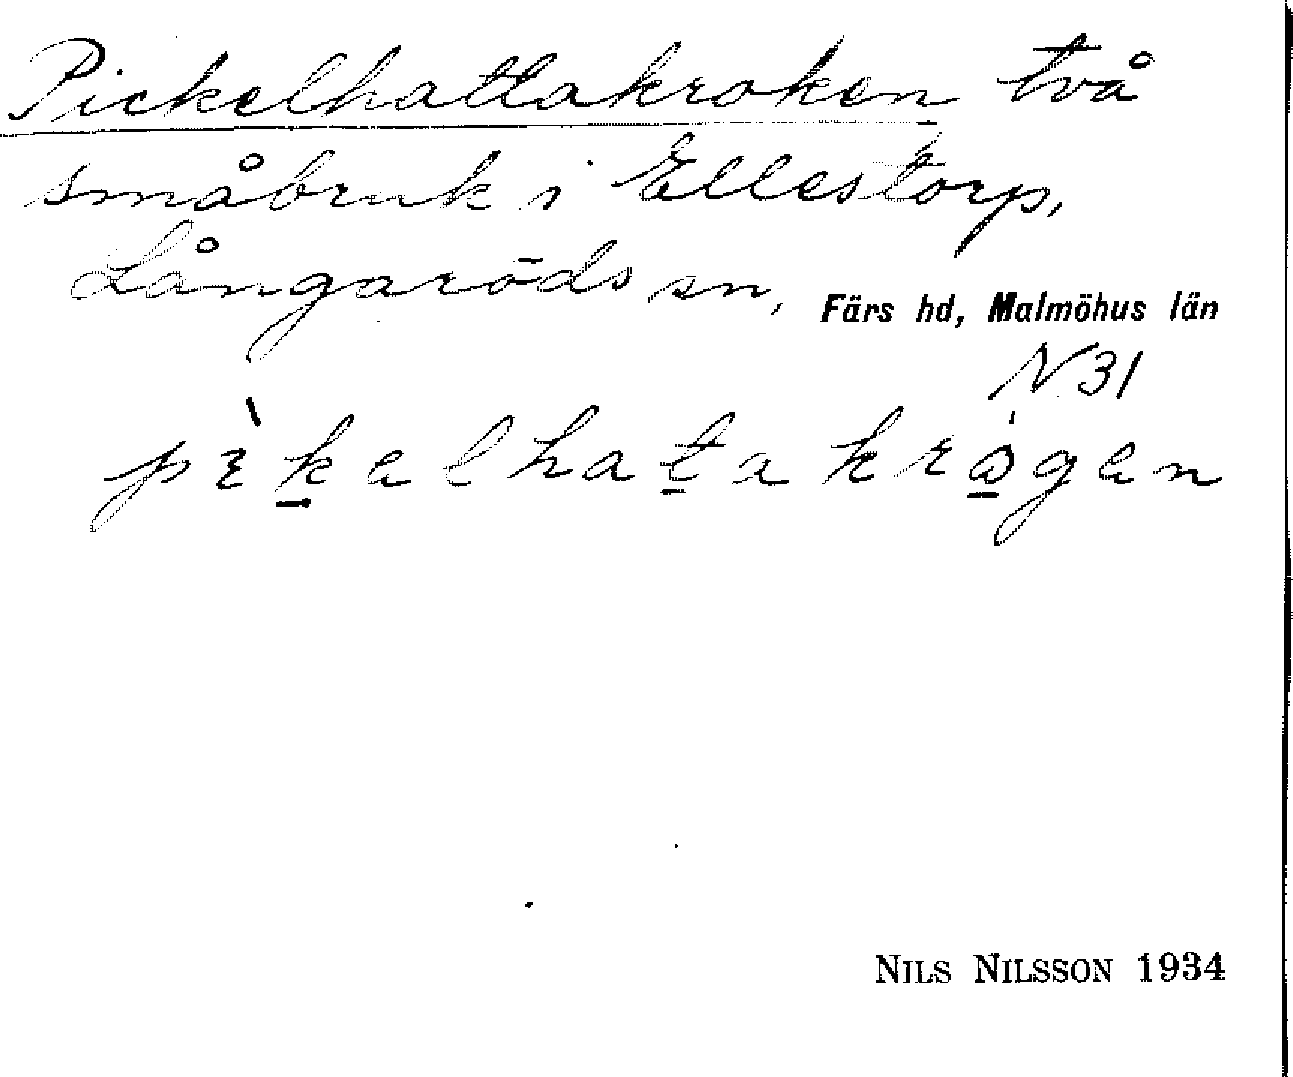 Pickelhattakroken två
småbruk i Ellestorp,
Långaröds sn, Färs hd, Malmöhus län
N31
pɛ̀k̠elhat̠akrò̠gen
NILS NILSSON 1934